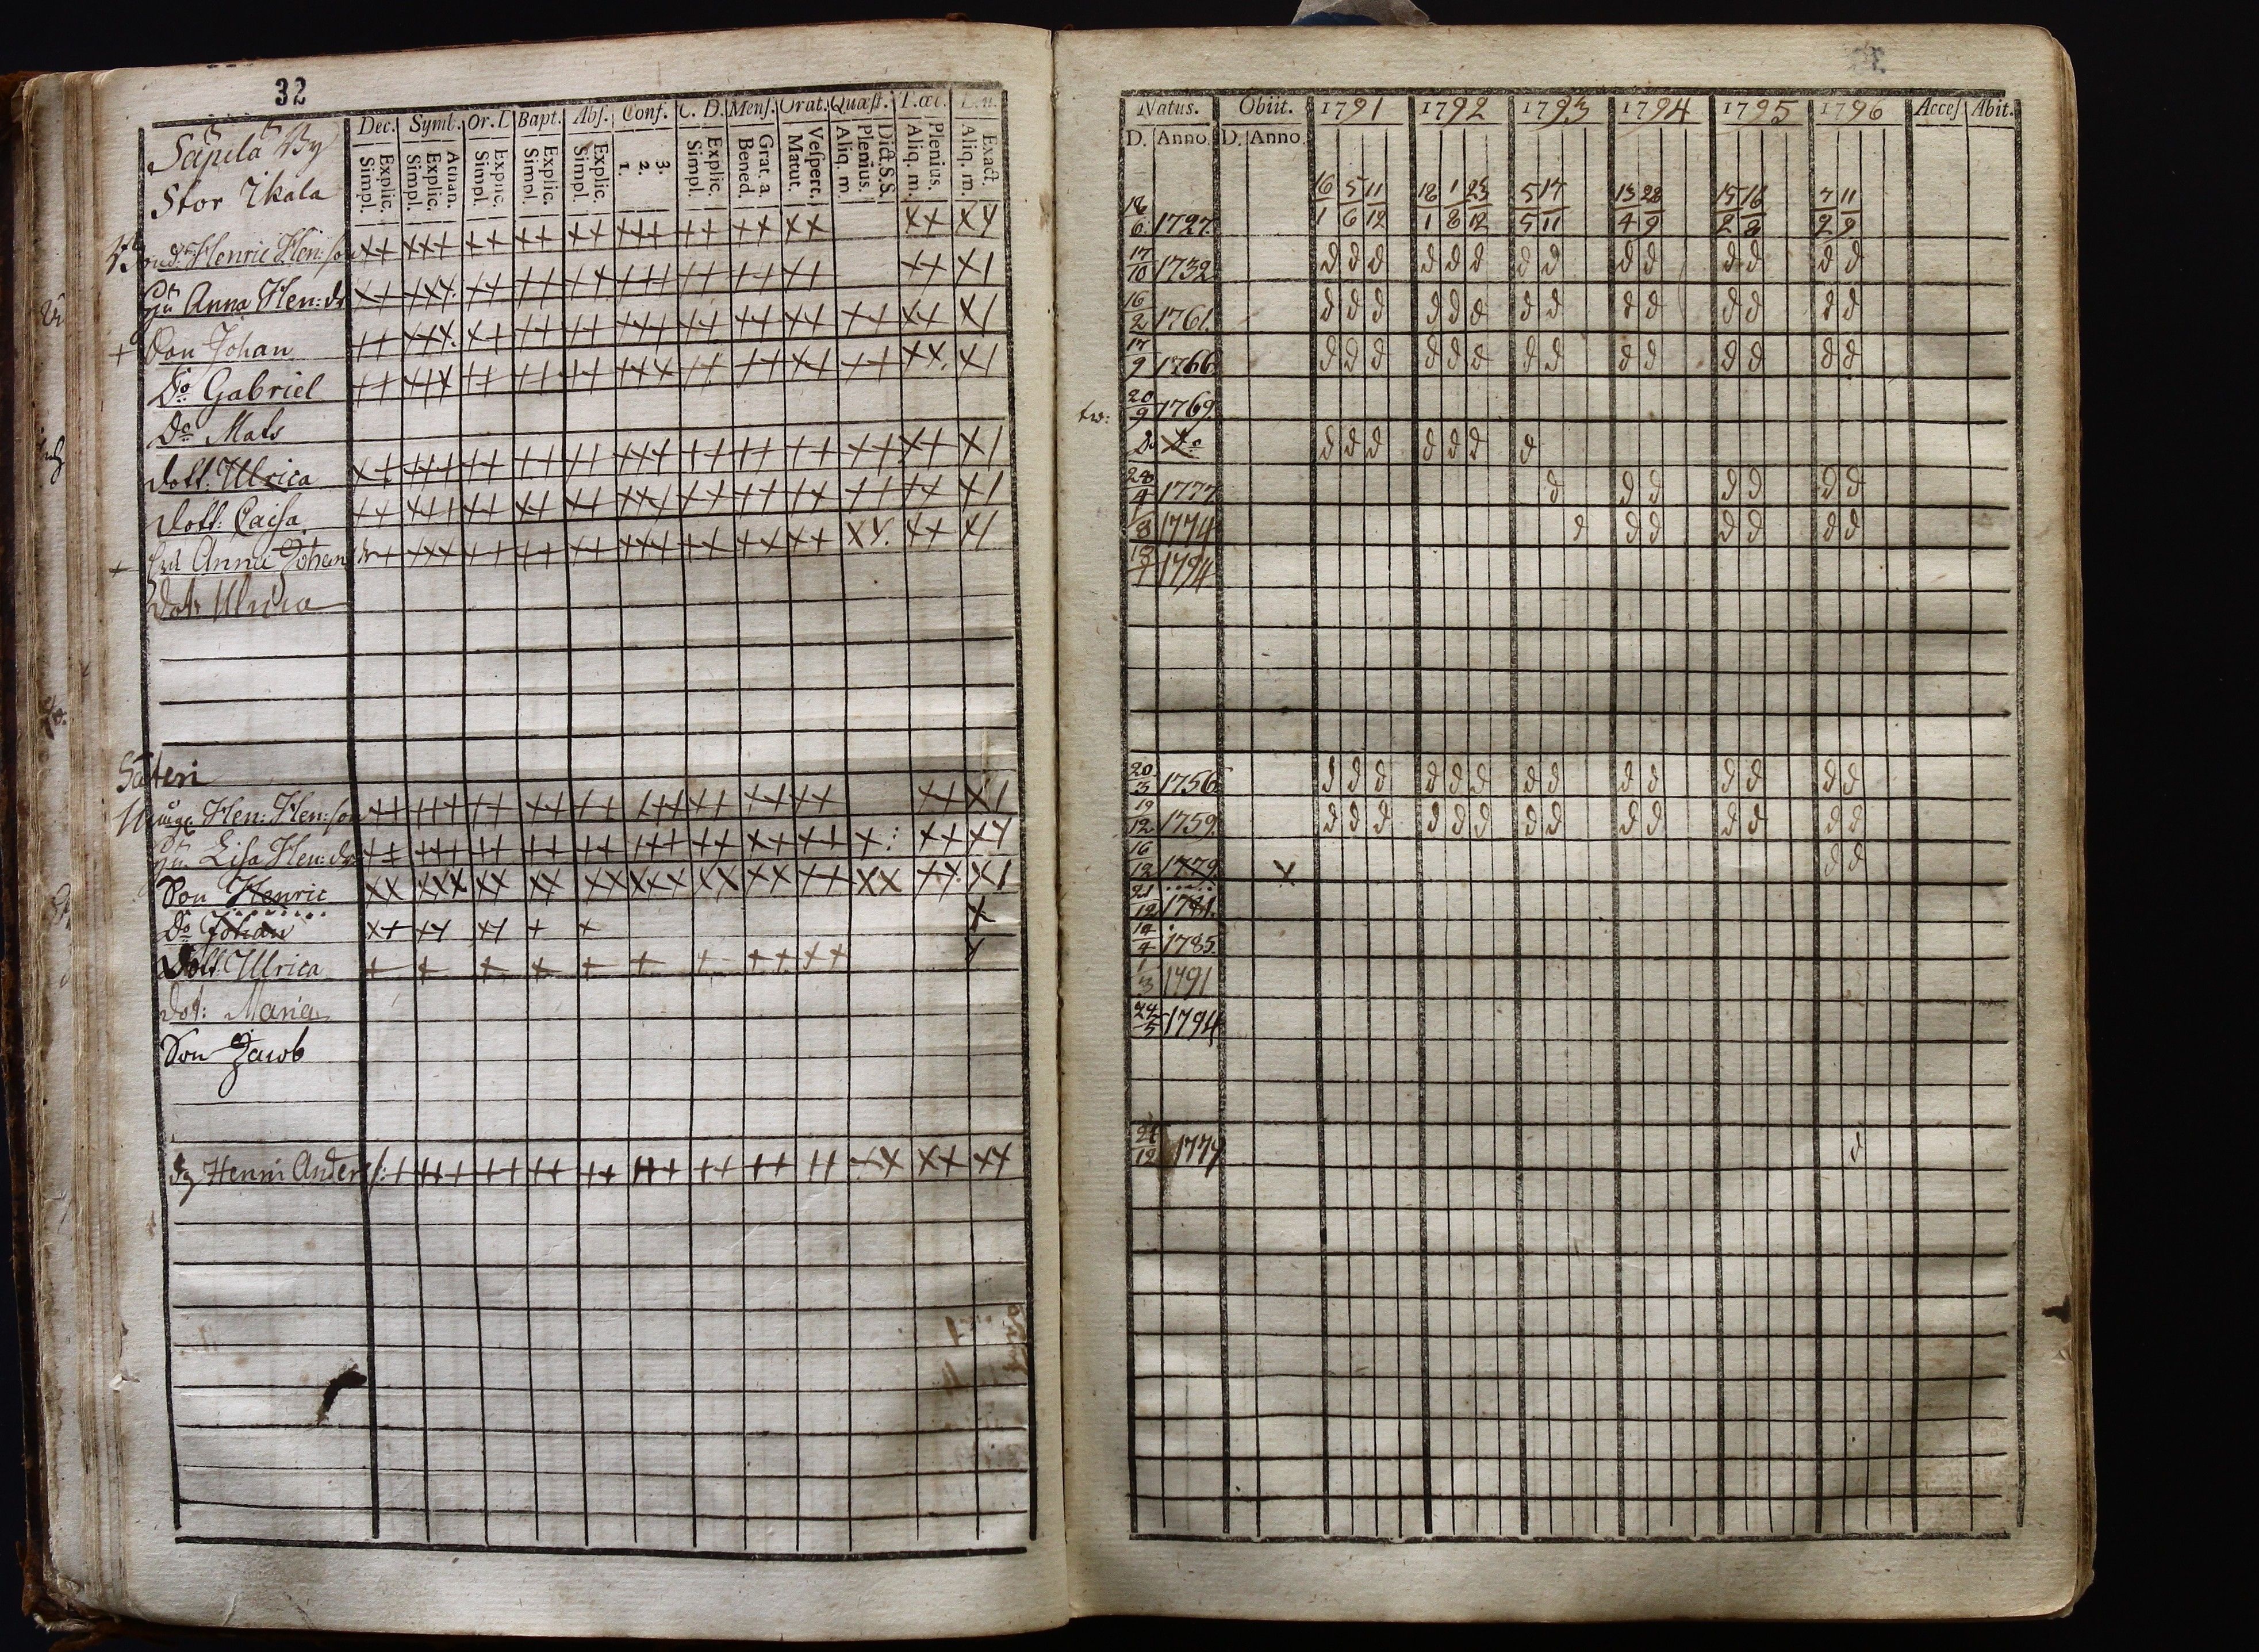 32
Dec. Symb. Or. D. Bapt. Abs. Conf. C. D. Mens. Orat. Quæst. T. œc.
Explic. Simpl.
Athan. Explic. Simpl.
Explic. Simpl.
Explic. Simpl.
Explic. Simpl.
3. 2. 1.
Explic. Simpl.
Grat. a. Bened.
Vespert. Matut.
Dict. S.S. Plenius. Aliq. m.
Plenius. Aliq. m.
Exact. Aliq. m.
By
Stor Ikala
Bond: Henric Hen:son
Hu Anna Hen:dr
Son Johan
Do Gabriel
Do Mats
Dott. Ulrica
Dott: Caisa
Anna Johan
Dott Ulrica
Säteri
Hen: Hen:son
Hu Lisa Hen:dr
Son Henric
Do Johan
Dott. Ulrica
Dot: Maria
Son Jacob
Dg Henric Anders
Natus. Obiit. 1791 1792 1793 1794 1795 1796 Acces Abit.
D. Anno. D. Anno.
16/1 5/6 11/12 18/1 1/8 23/12 5/5 17/11 13/4 28/9 15/2 16/8 7/2 11/9
18/6 1727.
17/10 1732
16/2 1761.
17/9 1766
tw: 20/9 1769
Do
28/4 1777
1/8 1774
18/7 1794
20/3 1756
19/12 1759
16/12 1779
21/12 1781.
14/4 1785.
1/3 1791
22/5 1794
21/12 1774